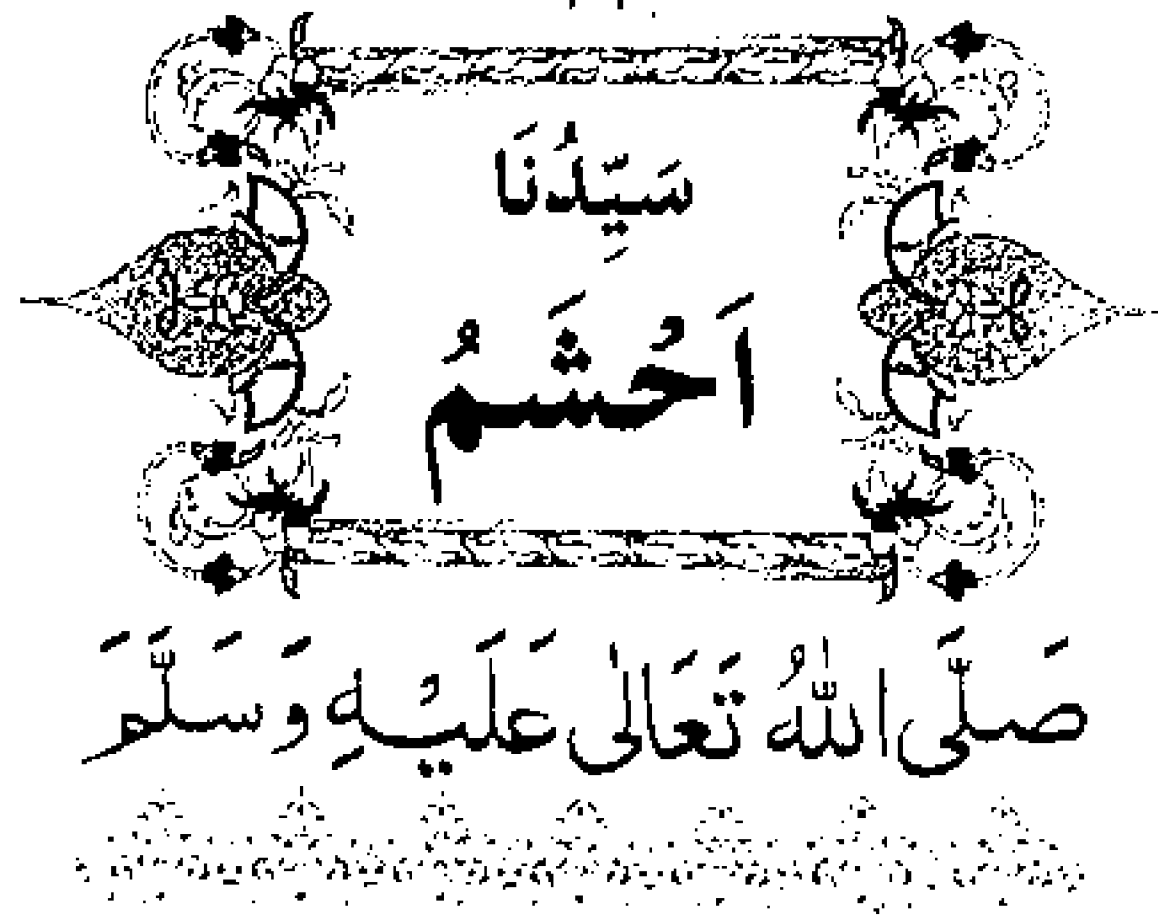 سَيِّدُنَا
اَحْشَمُ
صَلَّى اللّٰهُ تَعَالٰى عَلَيْهِ وَسَلَّمَ